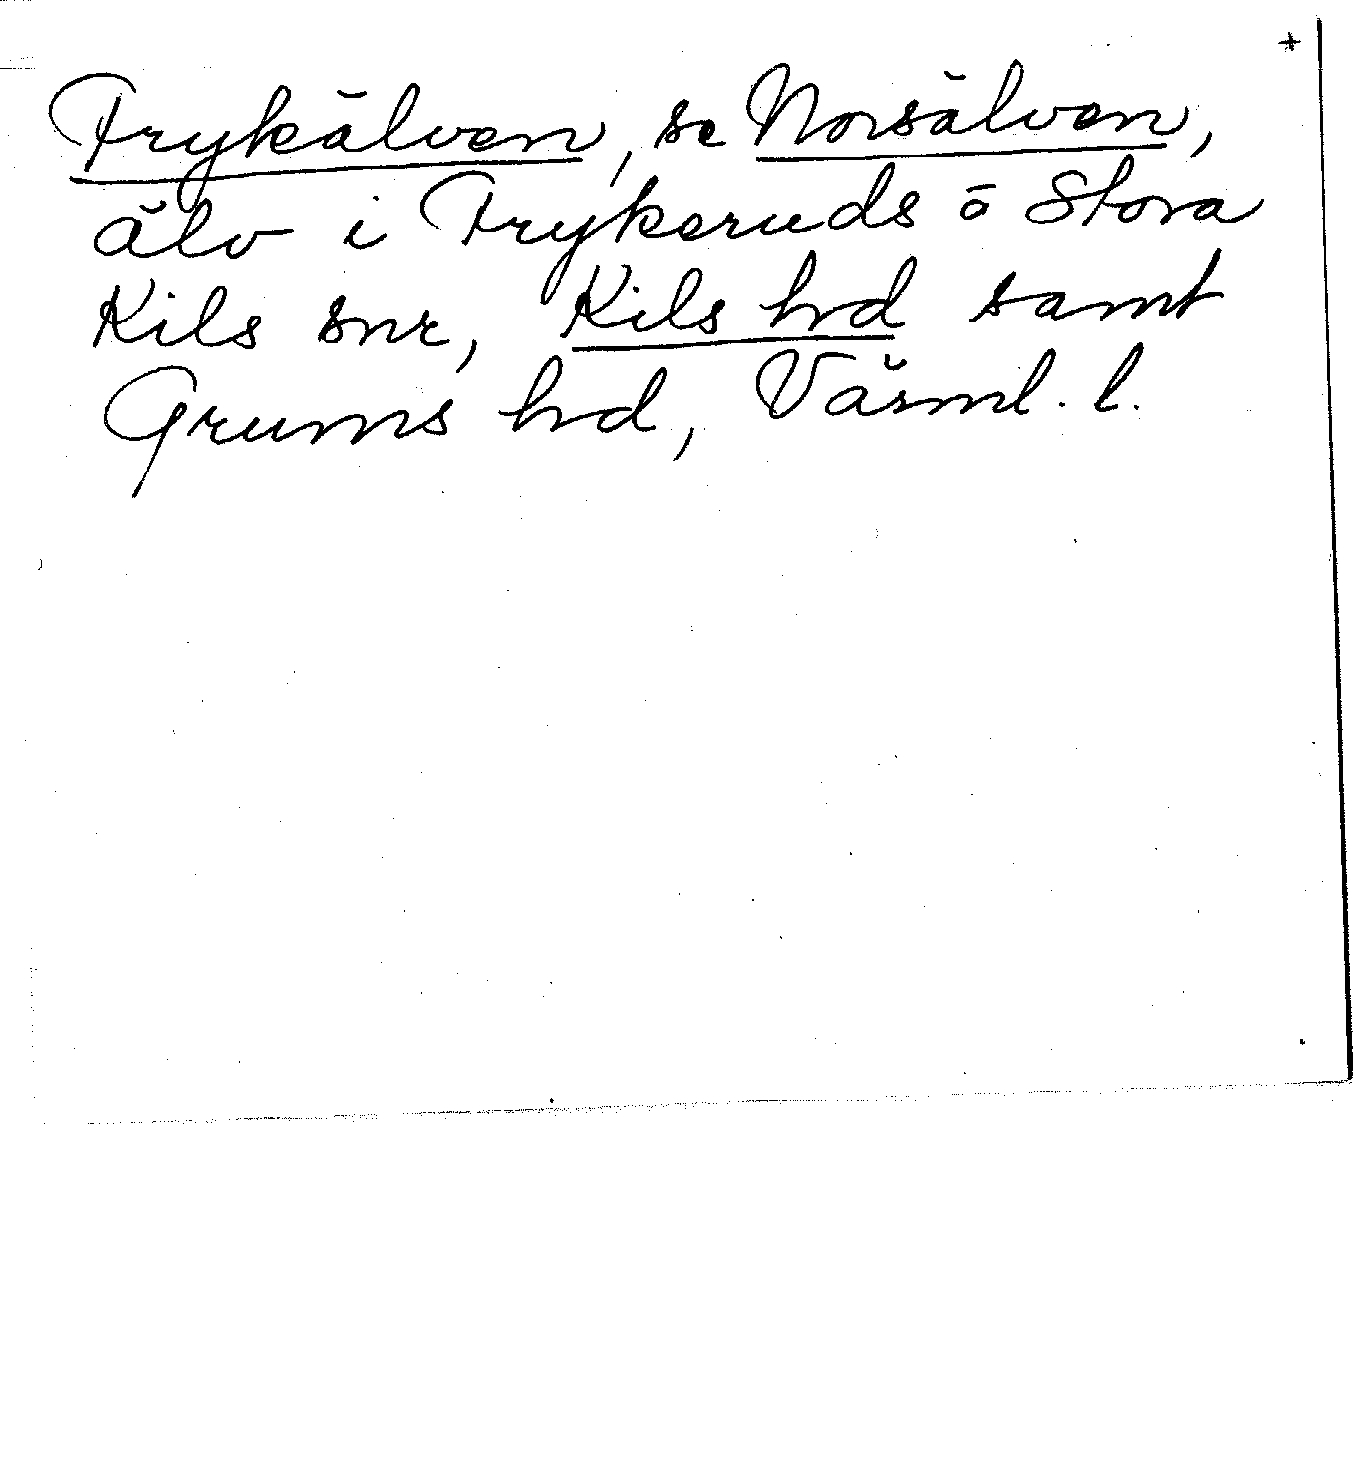 +
Frykälven, se Norsälven,
älv i Frykeruds o Stora
Kils snr, Kils hd samt
Grums hd, Värml. l.